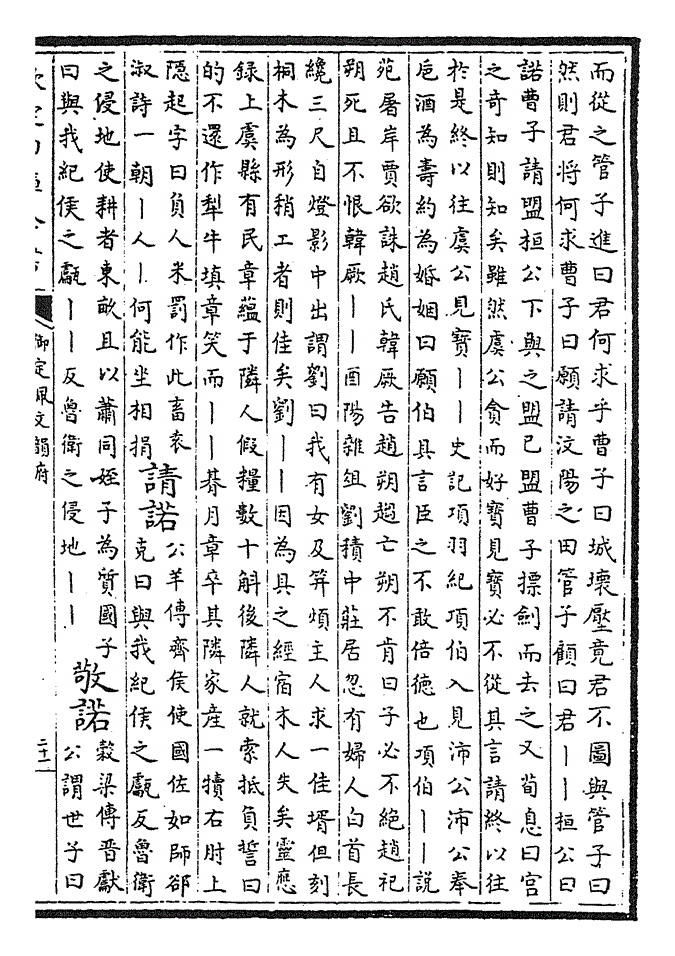 而從之管子進曰君何求乎曹子曰城壞壓竟君不圖與管子曰
然則君將何求曹子曰願請汶陽之田管子顧曰君丨丨桓公曰
諾曹子請盟桓公下與之盟已盟曹子摽劍而去之又荀息曰宮
之奇知則知矣雖然虞公貪而好寳見寳必不從其言請終以往
於是終以往虞公見寳丨丨史記項羽紀項伯入見沛公沛公奉
巵酒為壽約為婚姻曰願伯具言臣之不敢倍德也項伯丨丨說
苑屠岸賈欲誅趙氏韓厥告趙朔趨亡朔不肯曰子必不絶趙祀
朔死且不恨韓厥丨丨酉陽雜俎劉積中莊居忽有婦人白首長
纔三尺自燈影中出謂劉曰我有女及笄煩主人求一佳壻但刻
桐木為形稍工者則佳矣劉丨丨因為具之經宿木人失矣靈應
錄上虞縣有民章蘊于隣人假糧數十斛後隣人就索抵負誓曰
的不還作犁牛填章笑而丨丨朞月章卒其隣家産一犢右肘上
隠起字曰負人米罰作此畜袁
淑詩一朝丨人丨何能坐相捐
請諾
公羊傳齊侯使國佐如師郤
克曰與我紀侯之甗反魯衛
之侵地使耕者東畝且以蕭同姪子為質國子
曰與我紀侯之甗丨丨反魯衛之侵地丨丨
敬諾
穀梁傳晉獻
公謂世子曰
御定佩文韻府